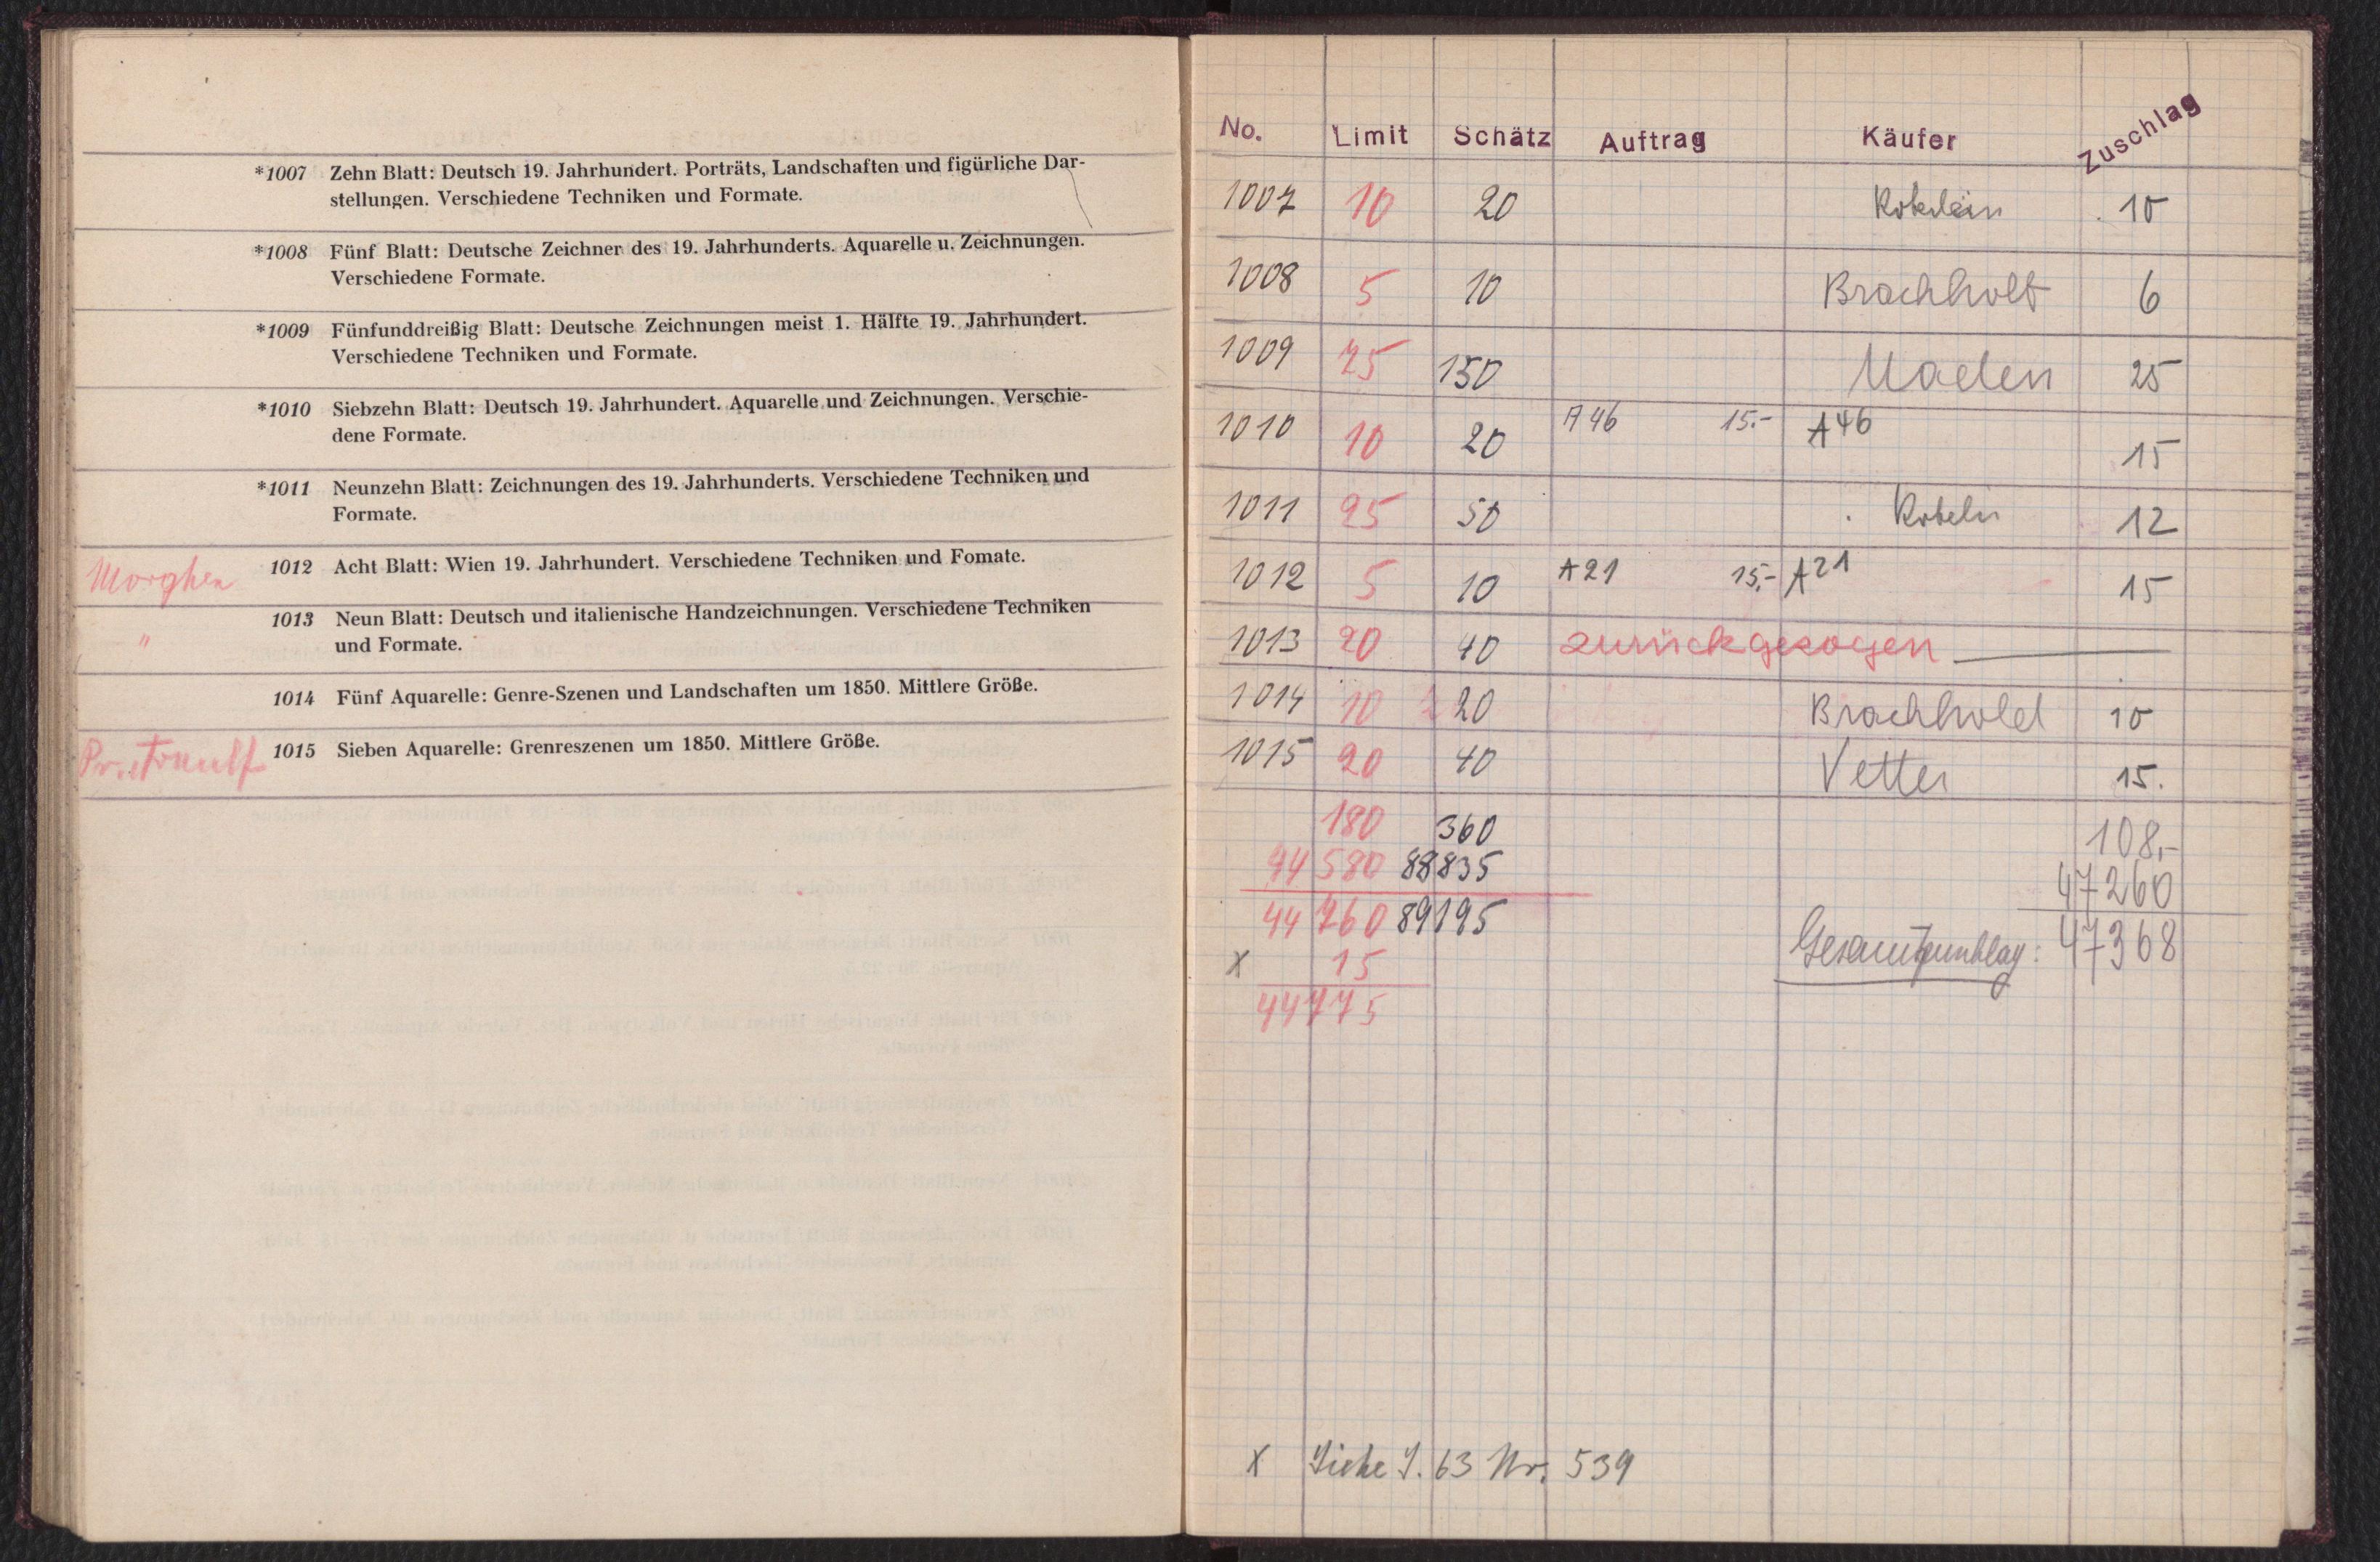 *1007 Zehn Blatt: Deutsch 19. Jahrhundert. Porträts, Landschaften und figürliche Dar-
stellungen. Verschiedene Techniken und Formate.
*1008 Fünf Blatt: Deutsche Zeichner des 19. Jahrhunderts. Aquarelle u. Zeichnungen.
Verschiedene Formate.
*1009 Fünfunddreißig Blatt: Deutsche Zeichnungen meist 1. Hälfte 19. Jahrhundert.
Verschiedene Techniken und Formate.
*1010 Siebzehn Blatt: Deutsch 19. Jahrhundert. Aquarelle und Zeichnungen. Verschie-
dene Formate.
*1011 Neunzehn Blatt: Zeichnungen des 19. Jahrhunderts. Verschiedene Techniken und
Formate.
Morghen 1012 Acht Blatt: Wien 19. Jahrhundert. Verschiedene Techniken und Fomate.
" 1013 Neun Blatt: Deutsch und italienische Handzeichnungen. Verschiedene Techniken
und Formate.
1014 Fünf Aquarelle: Genre-Szenen und Landschaften um 1850. Mittlere Größe.
1015 Sieben Aquarelle: Grenreszenen um 1850. Mittlere Größe.
No. Limit Schätz Auftrag Käufer Zuschlag
1007 10 20 10
1008 5 10 Brachholt 6
1009 75 150 25
1010 10 20 A 46 15.- A 46 15
1011 25 50 12
1012 5 10 A 21 15.- A 21 15
1013 20 40 zurückgezogen
1014 10 20 Brachhold 10
1015 20 40 Vetter 15.
180 360 108,-
44 580 88835 47260
44 760 89195 Gesamtzuschlag: 47368
x 15
44775
x Siehe S. 63 Nr. 539